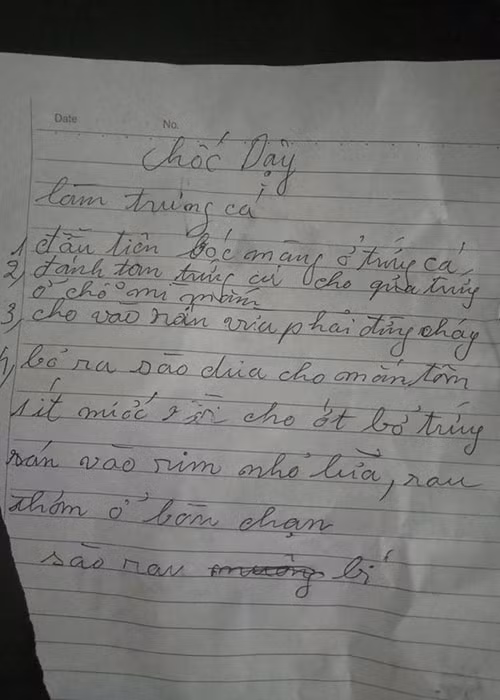 Date
No.
chốc Dậy
làm trứng cá
1, đầu tiên bóc màng ở trứng cá,
2, đánh tan trứng cá cho quả trứng
ở chỗ mì
3, cho vào rán vừa phải đừng cháy
4, bỏ ra sào dưa cho mắn tôm
sít nước rồi cho ớt bỏ trứng
rán vào rim nhỏ lửa, rau
thơm ở bồn chạn
sào rau bí